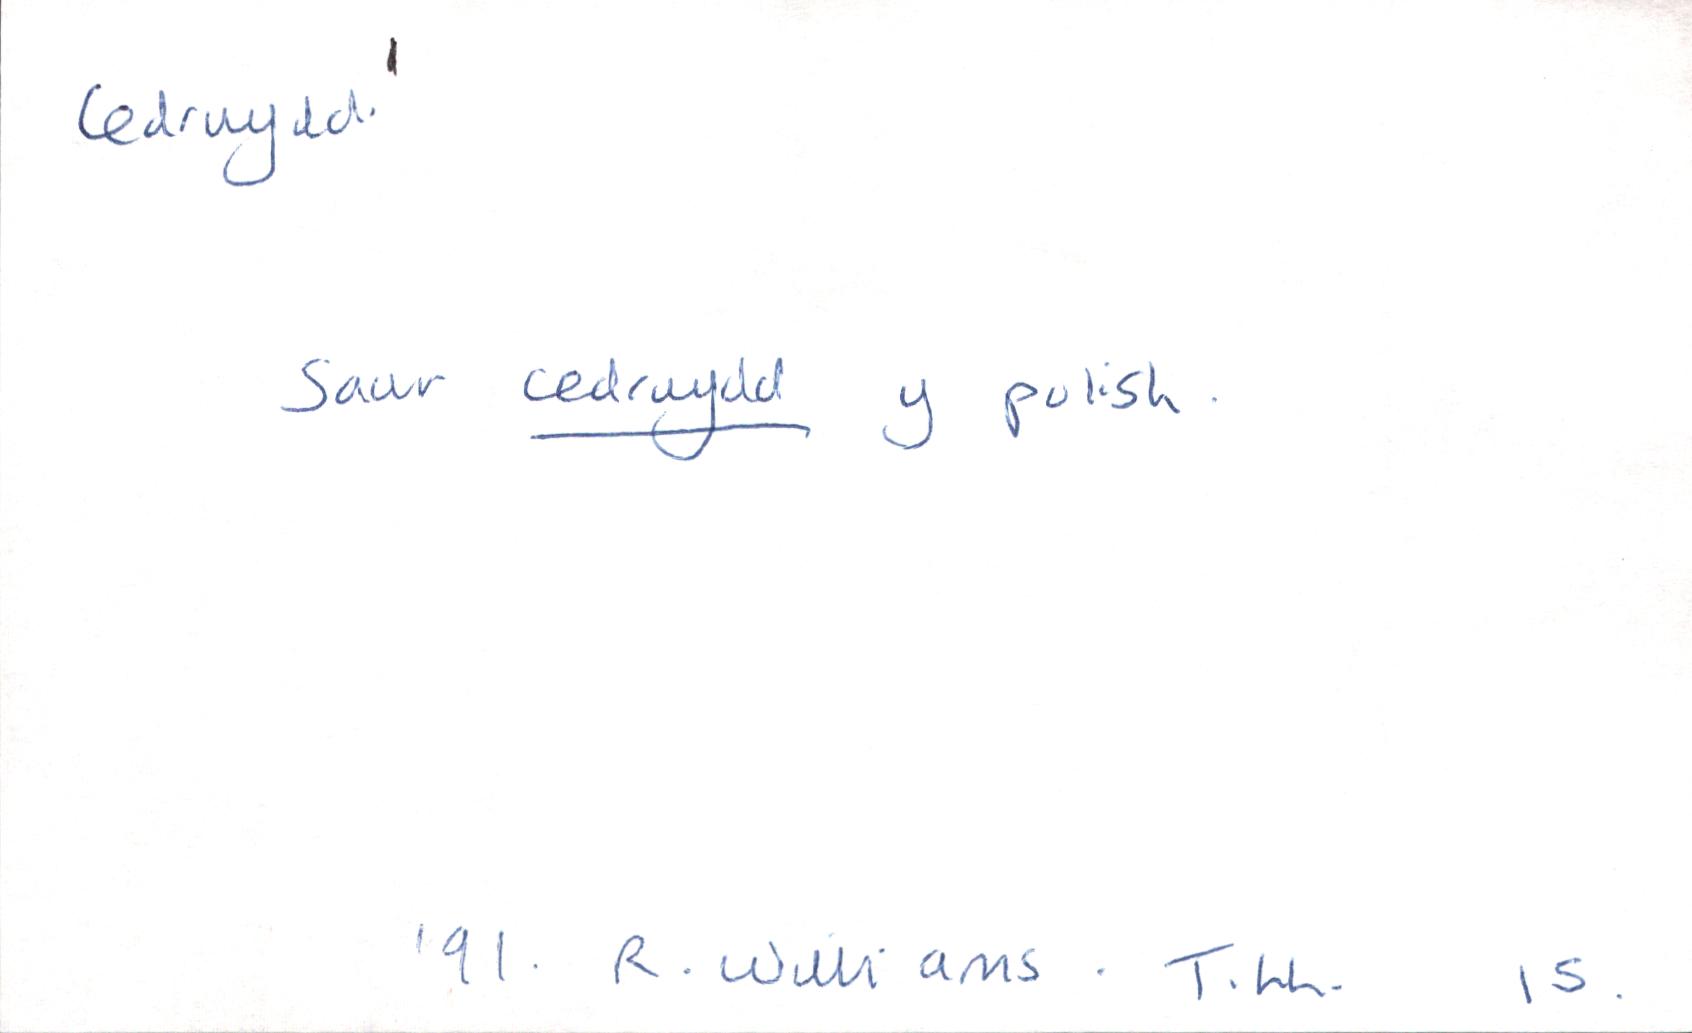 Cedrwydd.¹
Sawr cedrwydd y polish.
'91. R. Williams. T.Ll. 15.